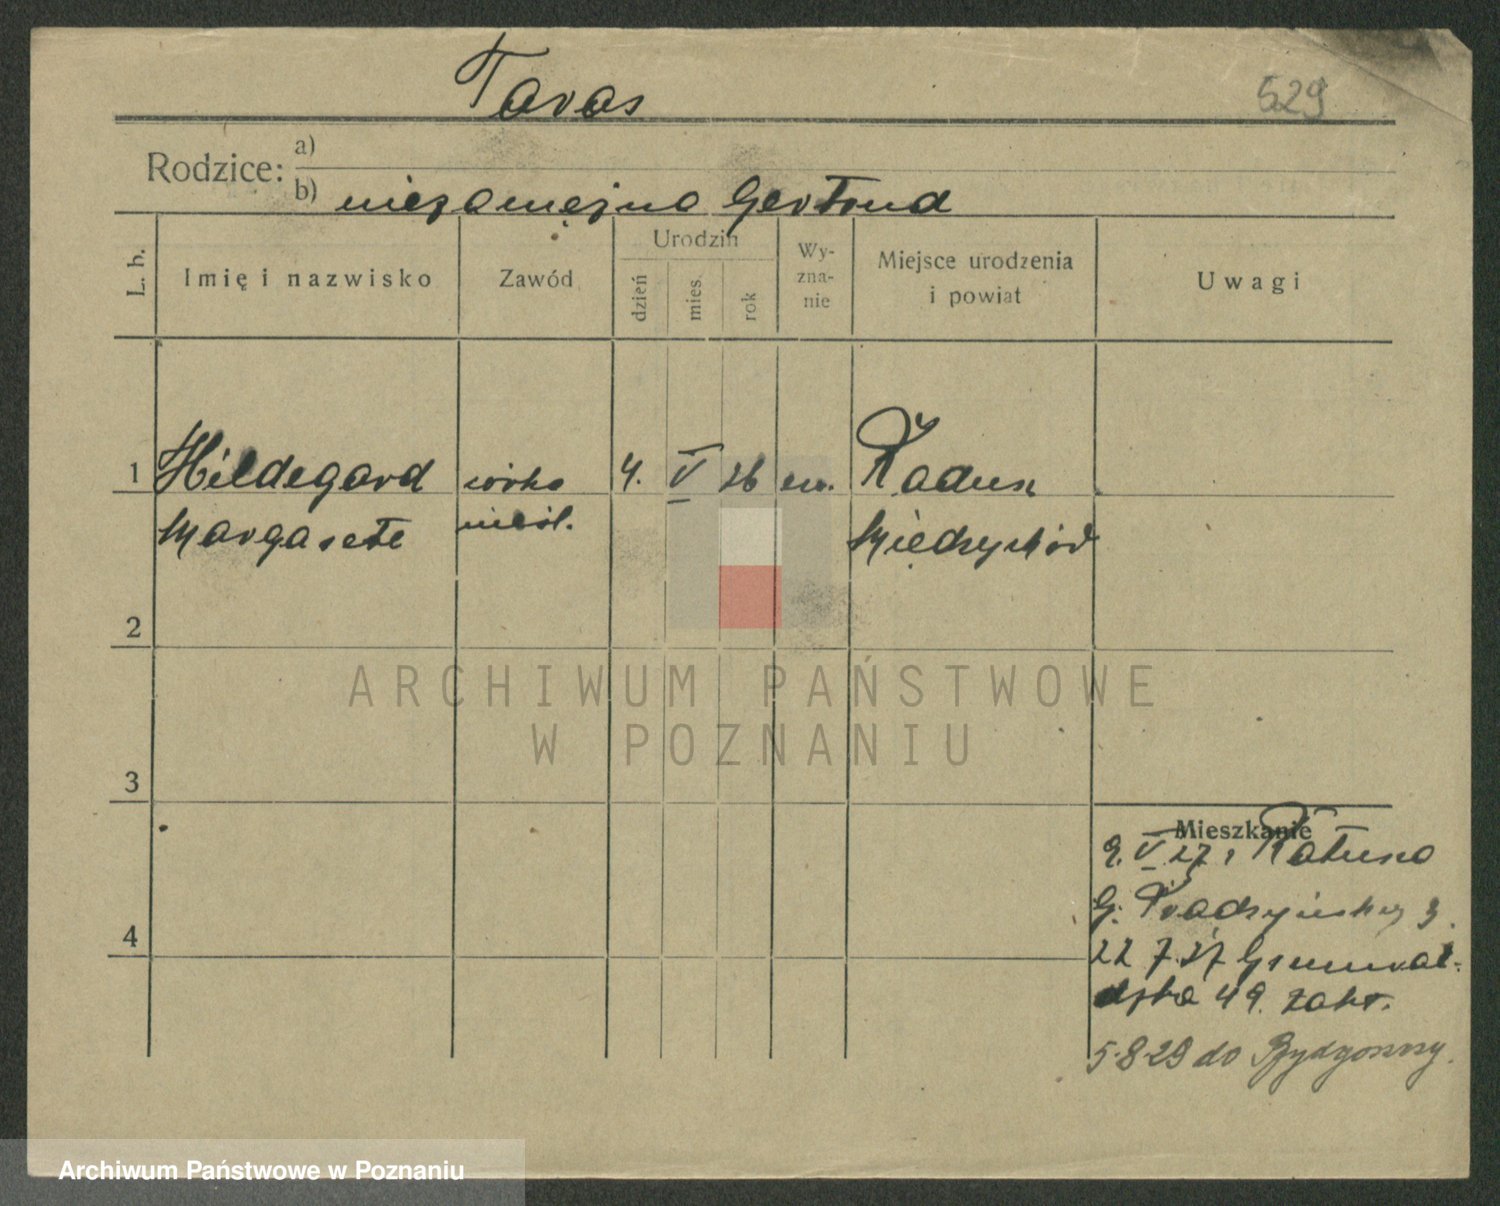 Taras
529
Rodzice: a)
b) niezamężna Gertrud
L. b. Imię i nazwisko Zawód Urodzin dzień mies. rok Wy-zna-nie Miejsce urodzenia i powiat Uwagi
1 Hildegard córka 4. V 26 ew. Radusz
Margarete nieśl. Międzychód
2
ARCHIWUM PAŃSTWOWE
W POZNANIU
3
Mieszkanie
2. V 27 z
4 G. Prądzyńskiej 3.
22 7.27 Grunwal-
dzka 49. Zakr.
5-8-29 do Bydgoszczy.
Archiwum Państwowe w Poznaniu